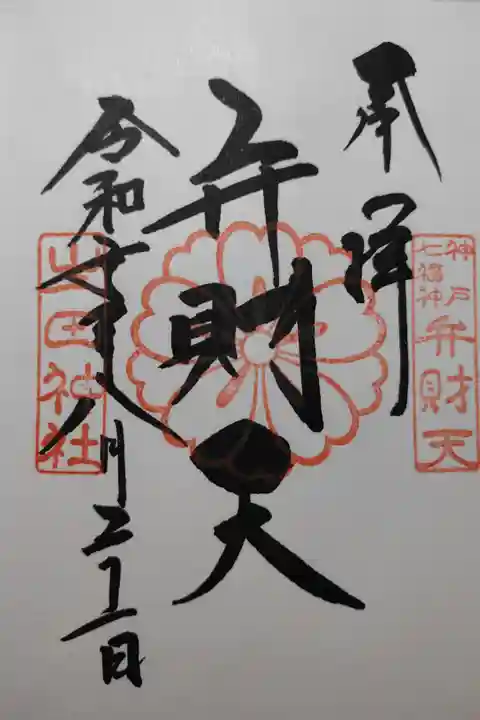 奉拝
神戸
七福神
弁財天
弁財天
令和七年八月二十一日
生田神社